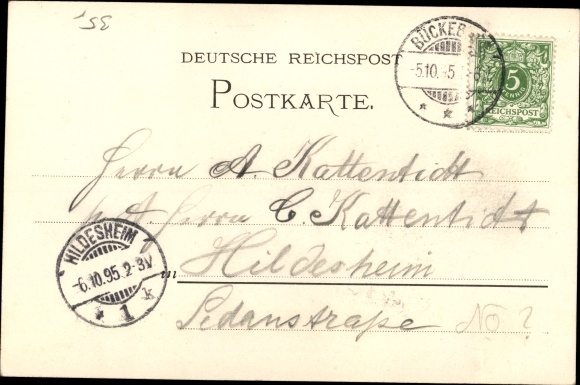 35.
DEUTSCHE REICHSPOST
POSTKARTE.
BÜCKEB
5.10.95
5
PFENNIG
REICHSPOST
Herrn A. Kattentidt
Herrn C. Kattentidt
in Hildesheim
Sedanstraße No ?
HILDESHEIM
6.10.95.2-3V
* 1 *